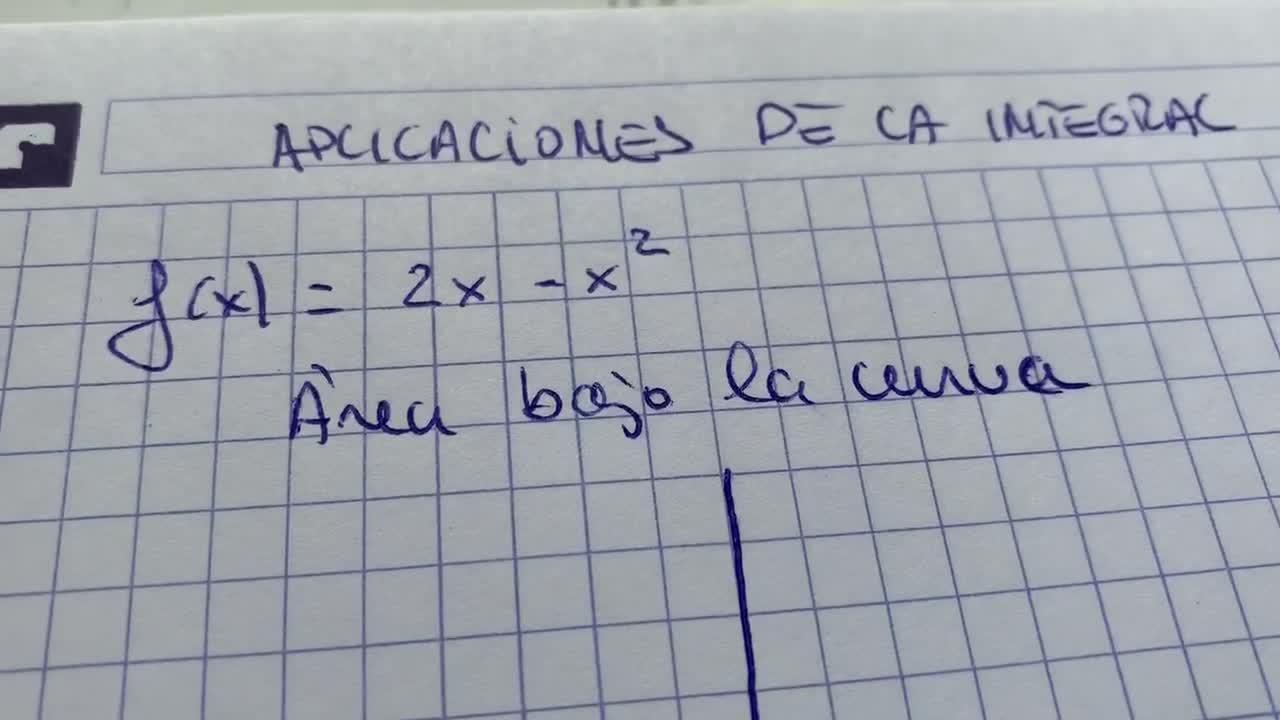 APLICACIONES DE LA INTEGRAL
f(x) = 2x - x²
Área bajo la curva